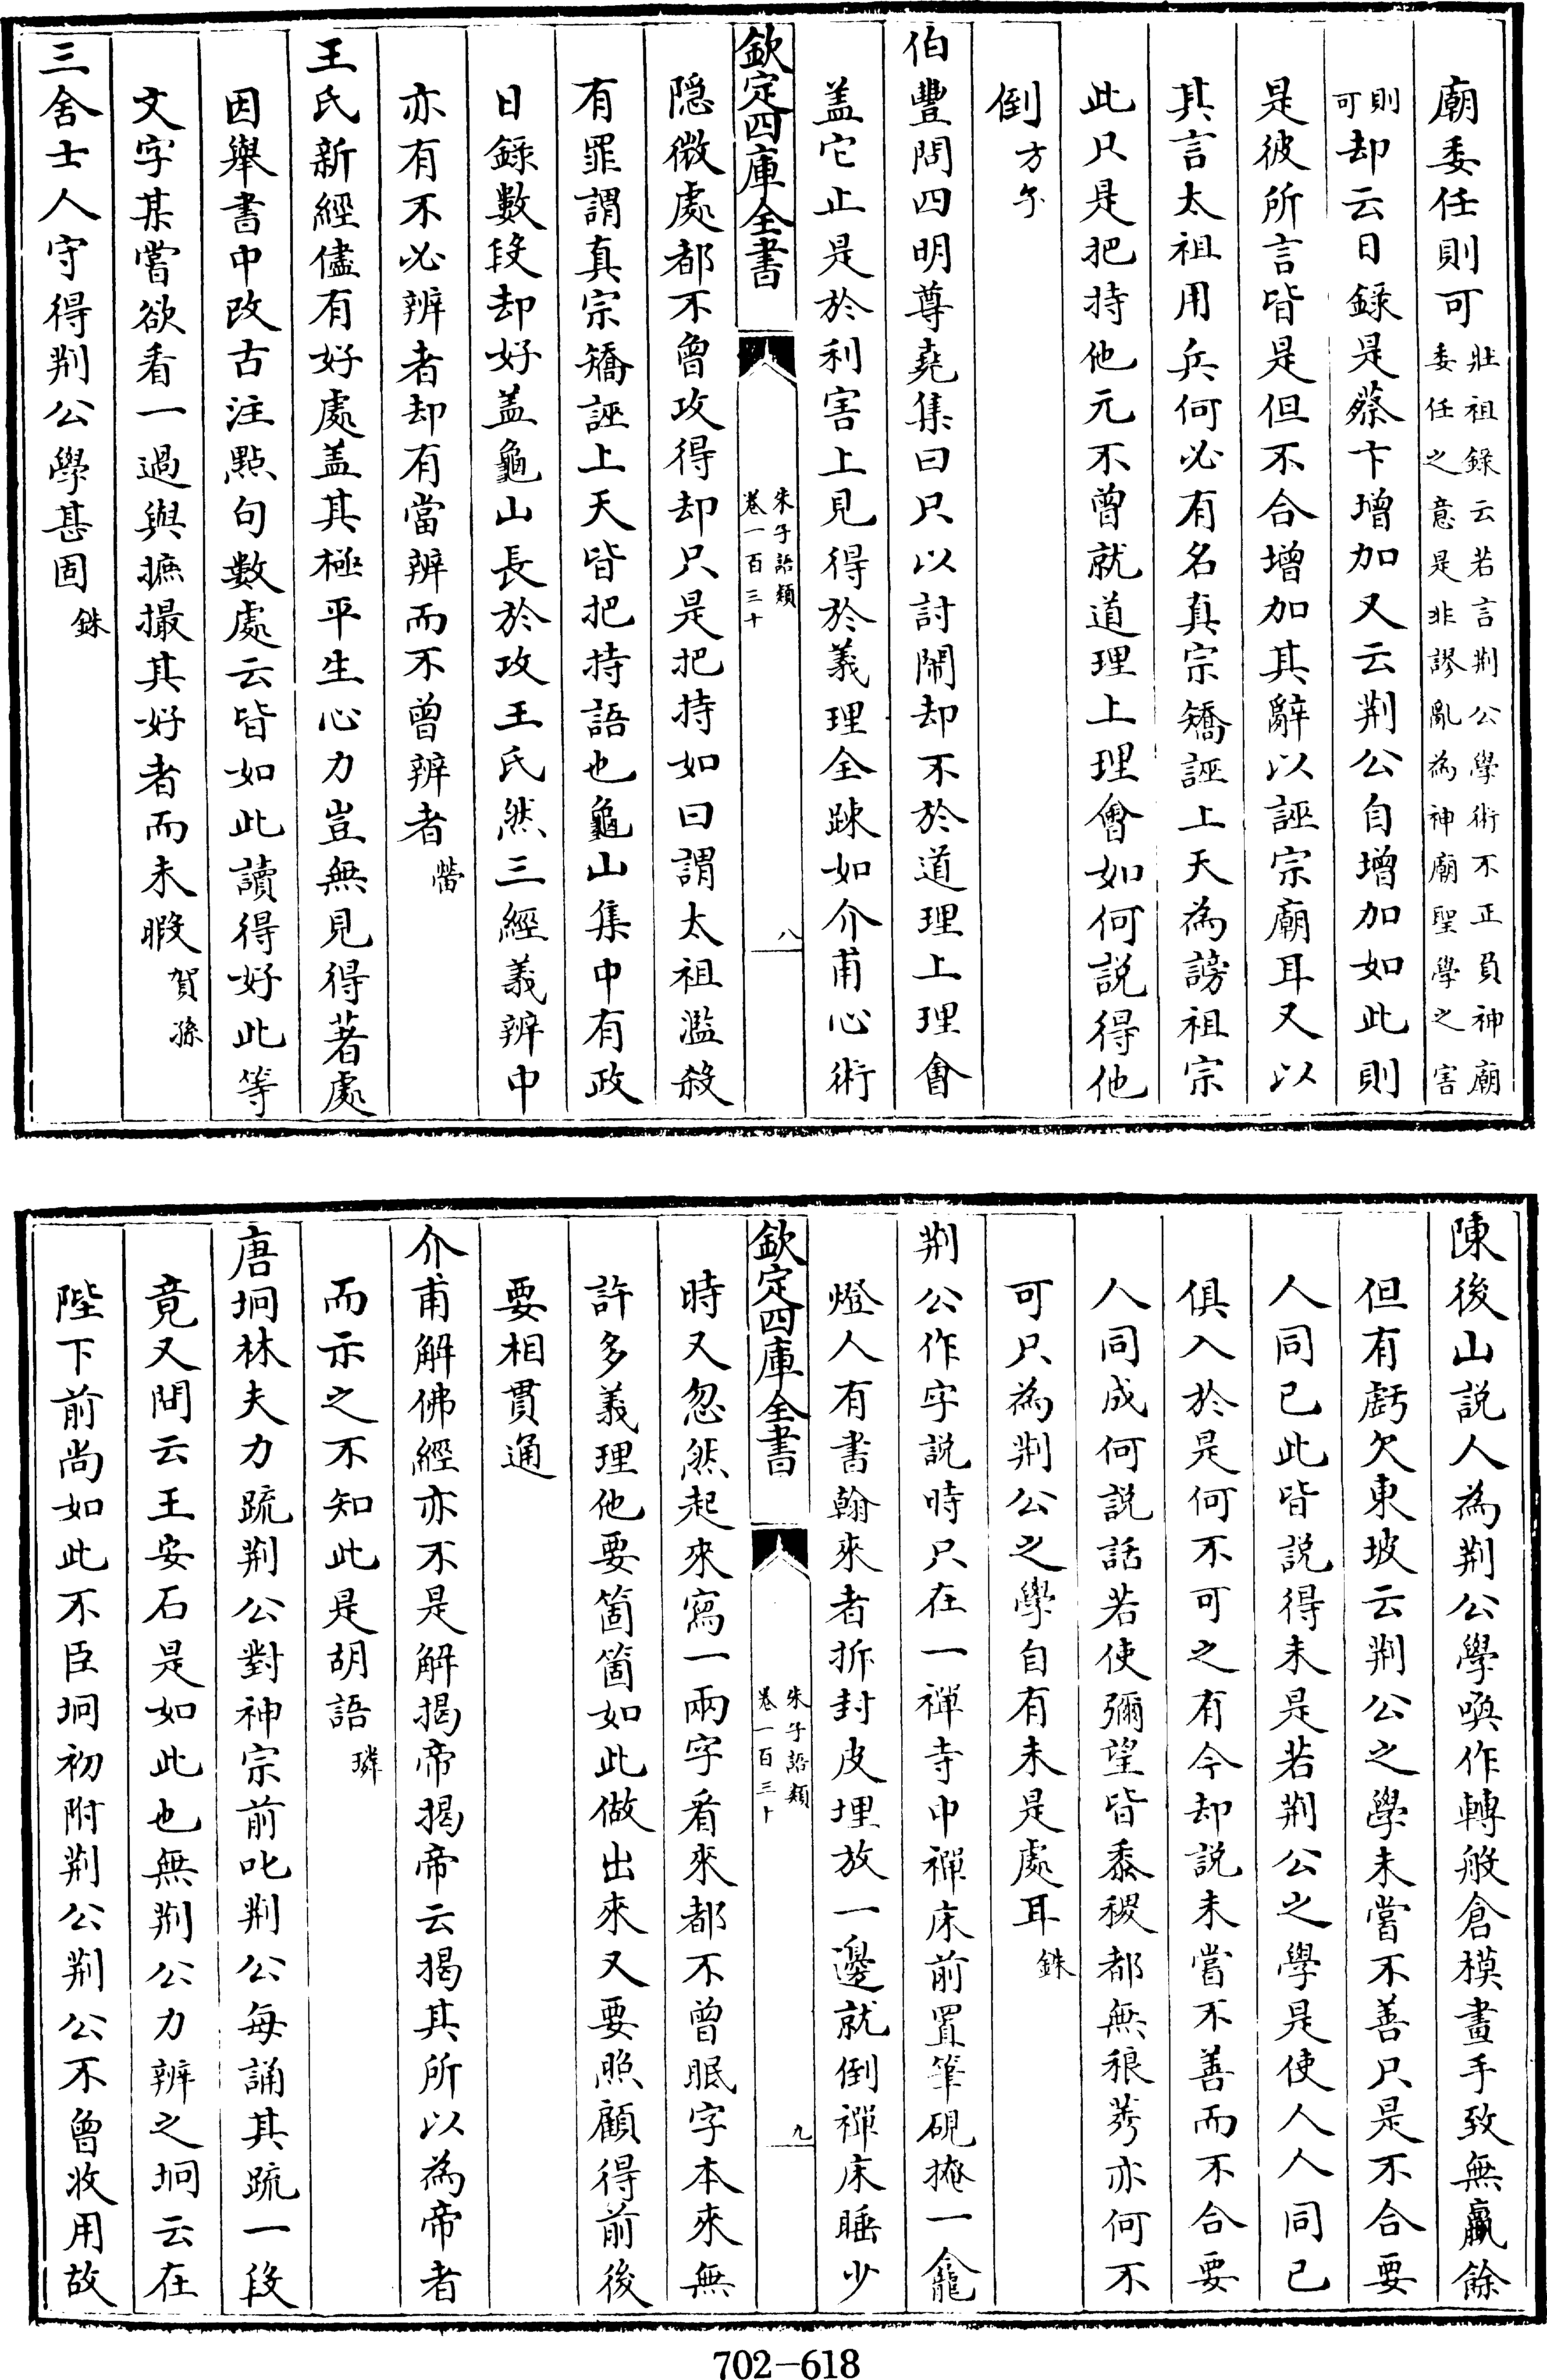 廟委任則可壯祖錄云若言荆公學術不正負神廟委任之意是非謬亂為神廟聖學之害
則可却云日錄是蔡卞增加又云荆公自增加如此則
是彼所言皆是但不合增加其辭以誣宗廟耳又以
其言太祖用兵何必有名真宗矯誣上天為謗祖宗
此只是把持他元不曾就道理上理會如何説得他
倒方子
伯豐問四明尊堯集曰只以討閙却不於道理上理會
盖它止是於利害上見得於義理全踈如介甫心術
欽定四庫全書
朱子語類
卷一百三十
八
隠微處都不曾攻得却只是把持如曰謂太祖濫殺
有罪謂真宗矯誣上天皆把持語也龜山集中有政
日錄數段却好盖龜山長於攻王氏然三經義辨中
亦有不必辨者却有當辨而不曾辨者㽦
王氏新經儘有好處盖其極平生心力豈無見得著處
因舉書中改古注㸃句數處云皆如此讀得好此等
文字某嘗欲看一過與摭撮其好者而未暇賀孫
三舍士人守得荆公學甚固銖
陳後山説人為荆公學喚作轉般倉模畫手致無贏餘
但有虧欠東坡云荆公之學未嘗不善只是不合要
人同已此皆説得未是若荆公之學是使人人同已
俱入於是何不可之有今却説未嘗不善而不合要
人同成何説話若使彌望皆黍稷都無稂莠亦何不
可只為荆公之學自有未是處耳銖
荆公作字説時只在一禪寺中禪床前置筆硯掩一龕
燈人有書翰來者拆封皮埋放一邊就倒禪床睡少
欽定四庫全書
朱子語類
卷一百三十
九
時又忽然起來寫一兩字看來都不曾眠字本來無
許多義理他要箇箇如此做出來又要照顧得前後
要相貫通
介甫解佛經亦不是解揭帝揭帝云揭其所以為帝者
而示之不知此是胡語璘
唐坰林夫力疏荆公對神宗前叱荆公每誦其疏一段
竟又問云王安石是如此也無荆公力辨之坰云在
陛下前尚如此不臣坰初附荆公荆公不曾收用故
702-618